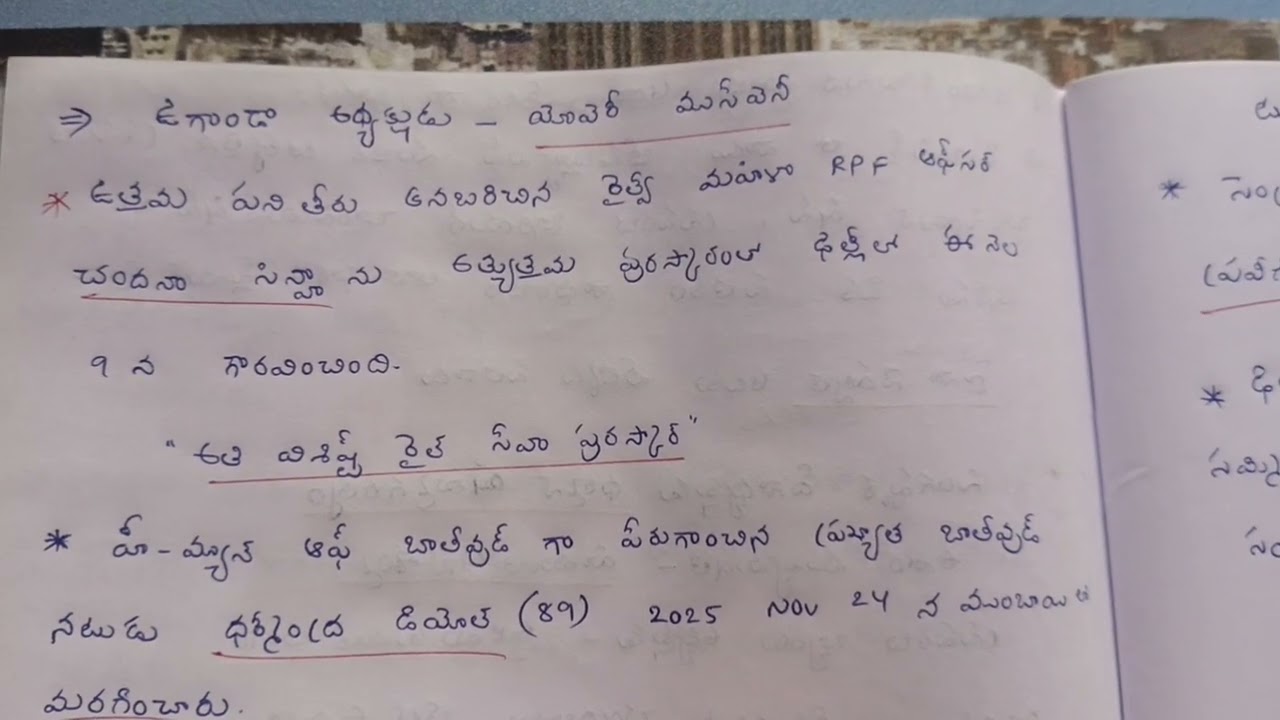 ⇒ ఉగాండా అధ్యక్షుడు - యోవెరీ ముసేవెనీ
* ఉత్తమ పనితీరు కనబరిచిన రైల్వే మహిళా RPF ఆఫీసర్
చందనా సిన్హా ను అత్యుత్తమ పురస్కారంతో ఢిల్లీలో ఈ నెల
9 న గౌరవించింది.
" అతి విశిష్ట్ రైల్ సేవా పురస్కార్ "
* హీ-మ్యాన్ ఆఫ్ బాలీవుడ్ గా పేరుగాంచిన ప్రఖ్యాత బాలీవుడ్
నటుడు ధర్మేంద్ర డియోల్ (89) 2025 Nov 24 న ముంబాయిలో
మరణించారు.